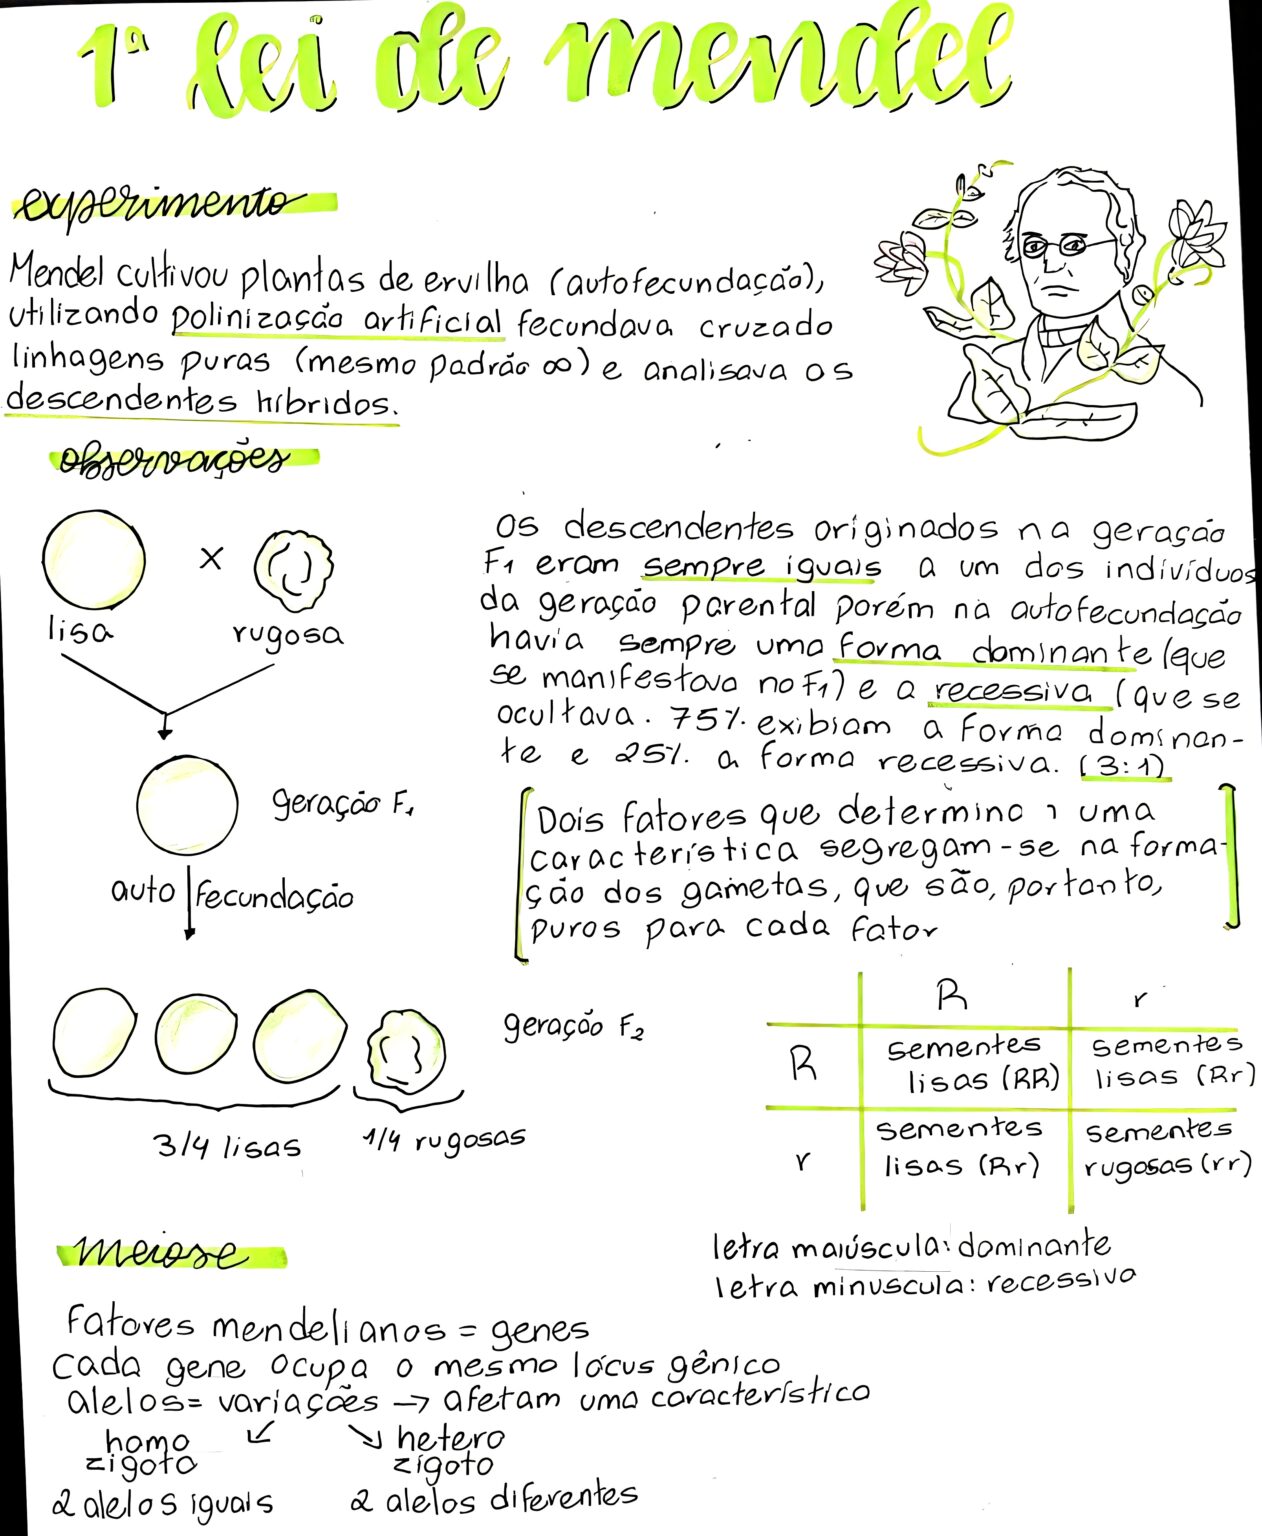 1ª lei de mendel
experimento
Mendel cultivou plantas de ervilha (autofecundação),
utilizando polinização artificial fecundava cruzado
linhagens puras (mesmo padrão ∞) e analisava os
descendentes híbridos.
observações
lisa
x
rugosa
geração F1
auto fecundação
geração F2
3/4 lisas
1/4 rugosas
os descendentes originados na geração
F1 eram sempre iguais a um dos indivíduos
da geração parental porém na autofecundação
havia sempre uma forma dominante (que
se manifestava no F1) e a recessiva (que se
ocultava. 75% exibiam a forma dominan-
te e 25% a forma recessiva. (3:1)
Dois fatores que determina 1 uma
característica segregam-se na forma-
ção dos gametas, que são, portanto,
puros para cada fator
R
r
R
sementes
lisas (RR)
sementes
lisas (Rr)
r
sementes
lisas (Rr)
sementes
rugosas (rr)
letra maiúscula: dominante
letra minuscula: recessiva
meiose
fatores mendelianos = genes
cada gene ocupa o mesmo lócus gênico
alelos = variações → afetam uma característica
homo
zigoto
2 alelos iguais
hetero
zigoto
2 alelos diferentes